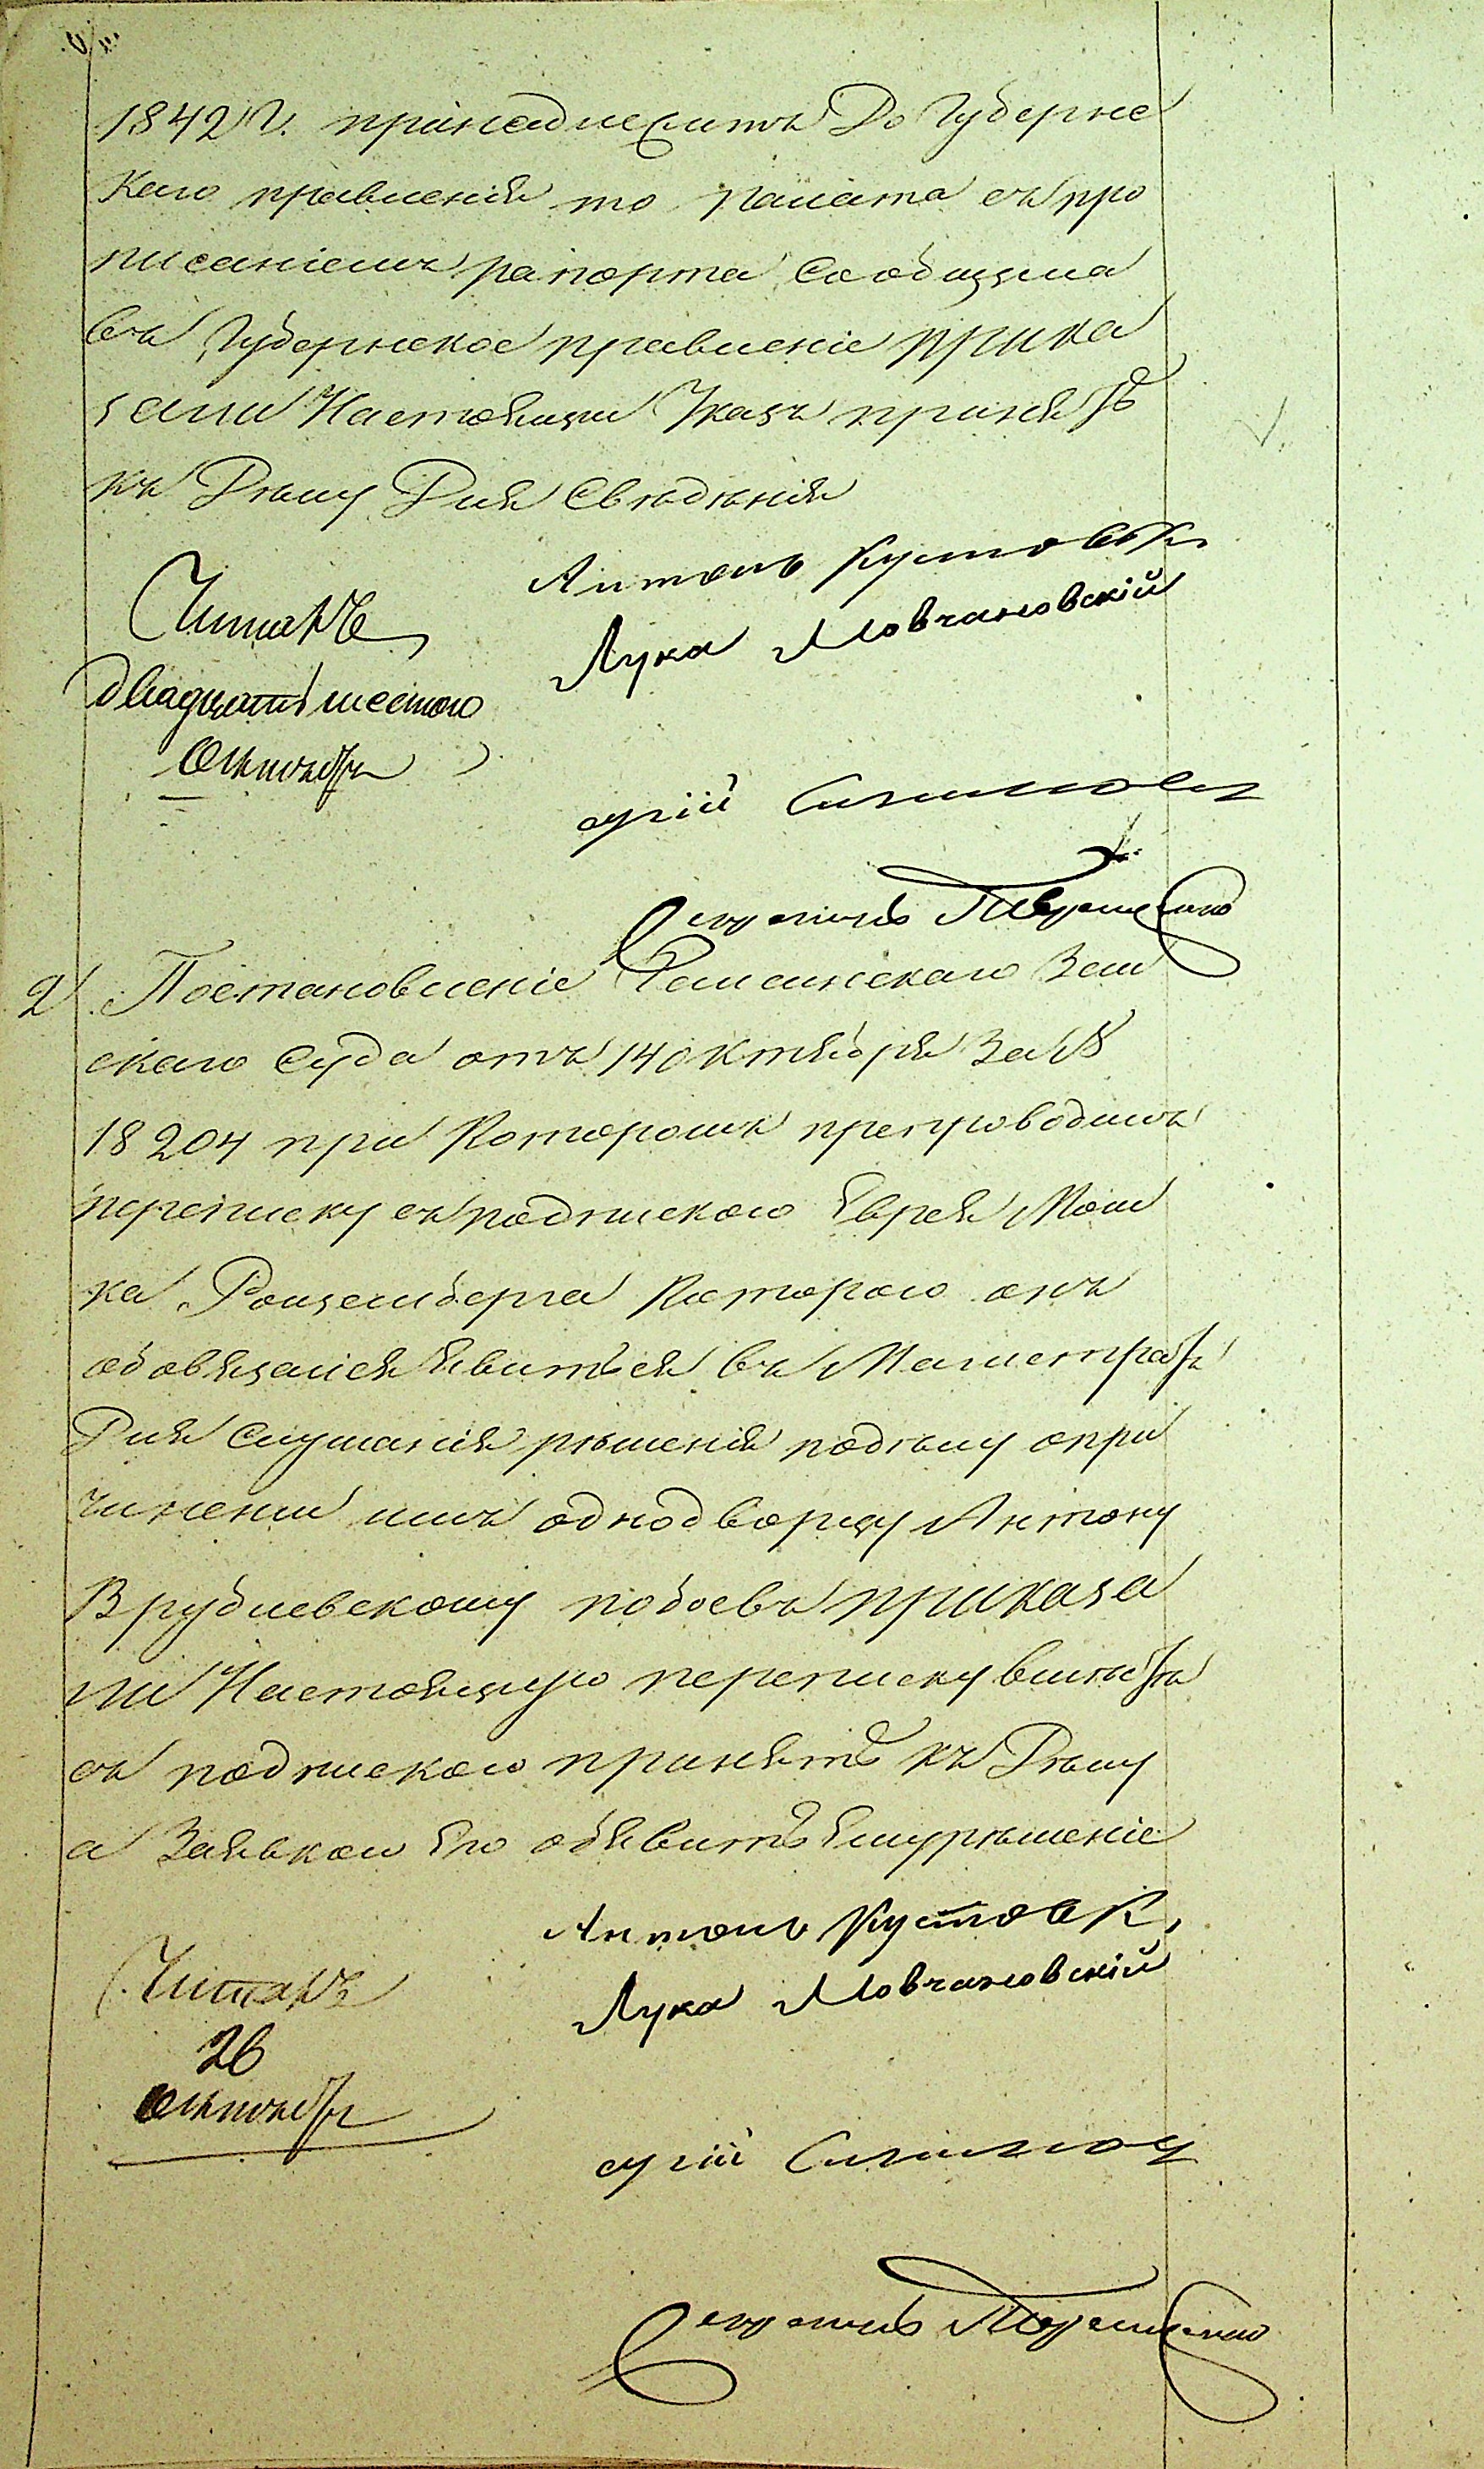 1842 г. принадлежитъ До Губернс
Каго правленія то палата съ про
писаніемъ рапорта Сообщила
Въ Губернское правленіе приказа
зали Настоящи Указъ принять
къ Дѣлу Для Свѣдѣнія
Антонъ Кустов
Лука Мовчановскій
Читалъ
двадцать шестого
Октября
2 Постановленіе Зем
скаго Суда отъ 14 октября За №
18204 при Которомъ препроводилъ
переписку съ подпискою Еврея Мош
ка Розенберга Которою онъ
обовязался явиться въ Магистратъ
Для Слушанія рѣшенія подѣлу опри
чинении имъ однодворцу Антону
Врублевскому побоевъ приказа
ли Настоящую переписку вмѣстѣ
съ подпискою принять къ Дѣлу
а Заявкою Его объявить Ему рѣшеніе
Антонъ Кустов
Лука Мовчановскій
Читалъ
26
Октября